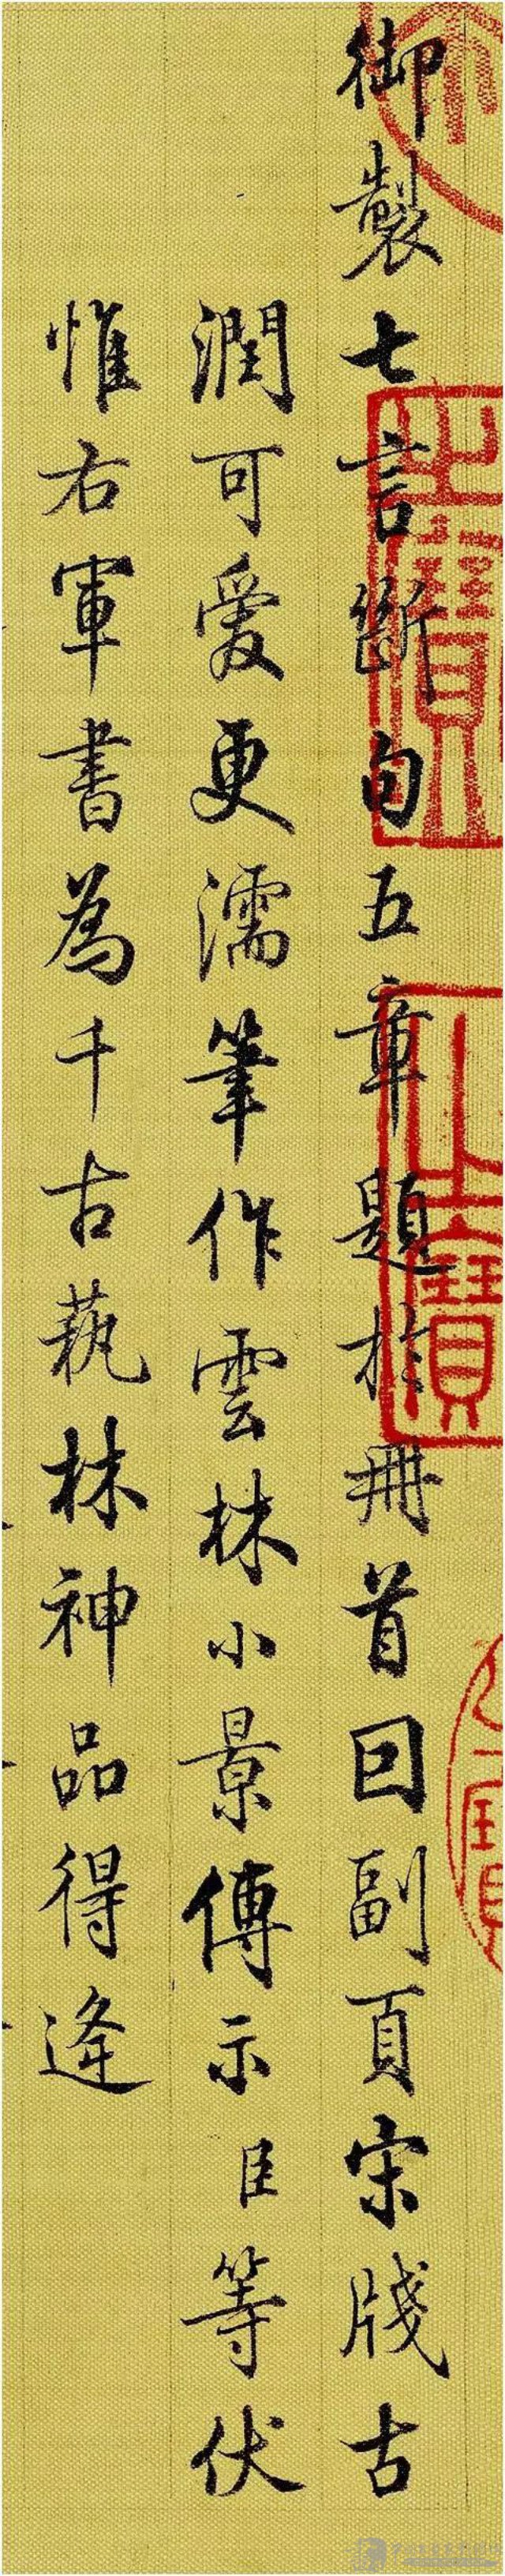 御製七言斷句五章題於冊首囙副頁宋牋古
潤可愛更濡筆作雲林小景傳示臣等伏
惟右軍書為千古藝林神品得逢